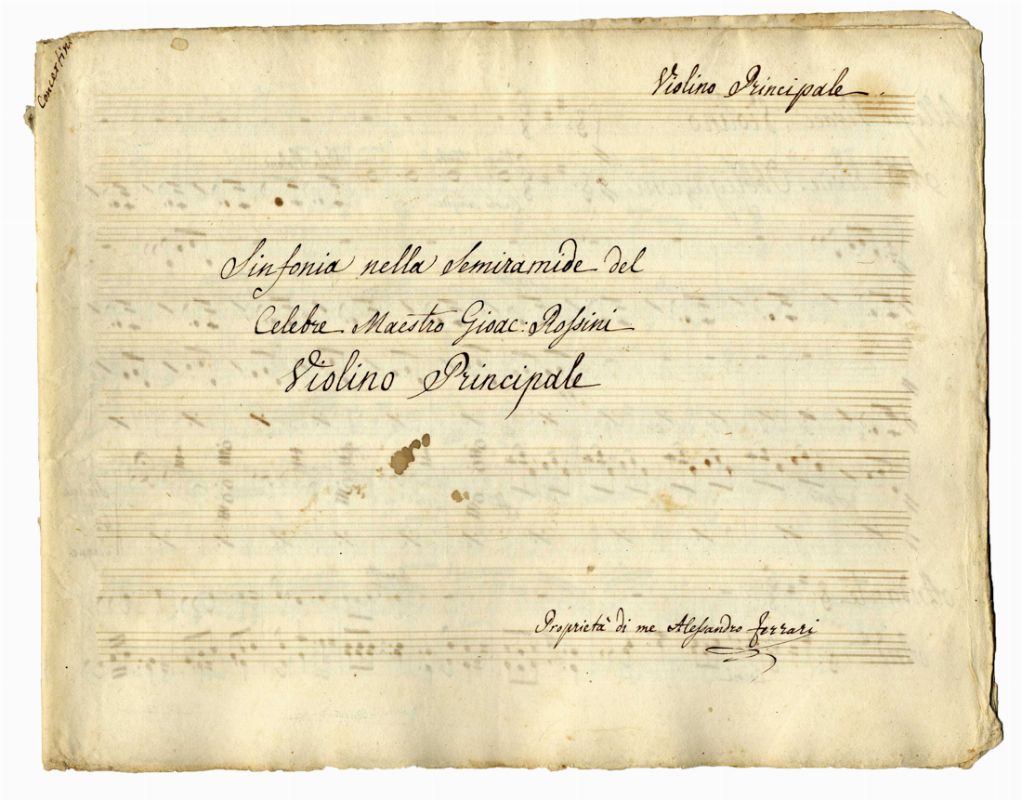 Concertino
Violino Principale
Sinfonia nella Semiramide del
Celebre Maestro Gioac: Rossini
Violino Principale
Proprietà di me Alessandro Ferrari